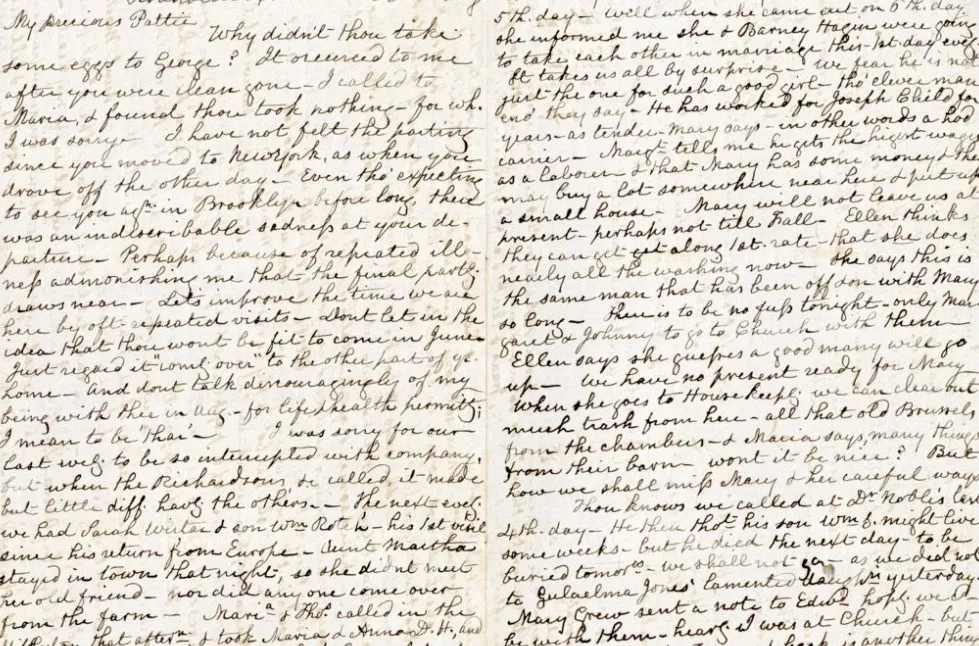 My precious Pattie
Why didn't thou take
some eggs to George? It occurred to me
after you were clean gone - I called to
Maria, & found thou took nothing - for wh.
I was sorry. I have not felt the parting
since you moved to New York, as when you
drove off the other day - Even tho' expecting
to see you agn. in Brooklyn before long, there
was an indiscribable sadness at your de-
parture - Perhaps because of repeated ill-
ness admonishing me that the final partg.
draws near - Let's improve the time we are
here by oft-repeated visits - Dont let in the
idea that thou wont be fit to come in June
Just regard it "comg. over" to the other part of yr.
home - And dont talk discouragingly of my
being with thee in Aug. - for life & health permittg.
I mean to be "thar" - I was sorry for our
last eveg. to be so interrupted with company,
but when the Richardsons &c called, it made
but little diff. havg. the others. - The next eveg.
we had Sarah & son Wm - his 1st visit
since his return from Europe - Aunt Martha
stayed in town that night, so she didnt meet
her old friend - nor did any one come over
from the farm - Maria & Tho. called in the
that aftern. & took Maria & Anna D. H., and
5th. day - Well when she came out on 6th. day
she informed me she & Barney Hagen were going
to take each other in marriage this 1st. day eveg.
It takes us all by surprise - We fear he is not
just the one for such a good girl - tho' clever man
eno' they say - He has worked for Joseph Child for
years - as tender - Mary says - in other words a hod
carrier - Margt. tells me he gets the highest wages
as a laborer - & that Mary has some money &
may buy a lot somewhere near here & put up
a small house - Mary will not leave us at
present - perhaps not till Fall - Ellen thinks
they can get get along 1st. rate - that she does
nearly all the washing now - She says this is
the same man that has been off & on with Mary
so long - There is to be no fuss tonight - only Mar-
garet & Johnny to go to Church with them -
Ellen says she guesses a good many will go
up - We have no present ready for Mary
When she goes to Housekeepg. we can clear out
much trash from here - all that old Brussels
from the chambers - & Maria says, many things
from their barn - wont it be nice? But
how we shall miss Mary & her careful ways
Thou knows we called at Dr. Noble's last
4th. day - He then thot. his son Wm might live
some weeks - but he died the next day - to be
buried tomorw. - we shall not go - as we did not
to Gulaelma Jones' lamented daughtr. yesterday
Mary Grew sent a note to Edwd. hopg. we wd.
be with them - hearg. I was at Church - but
is another thing